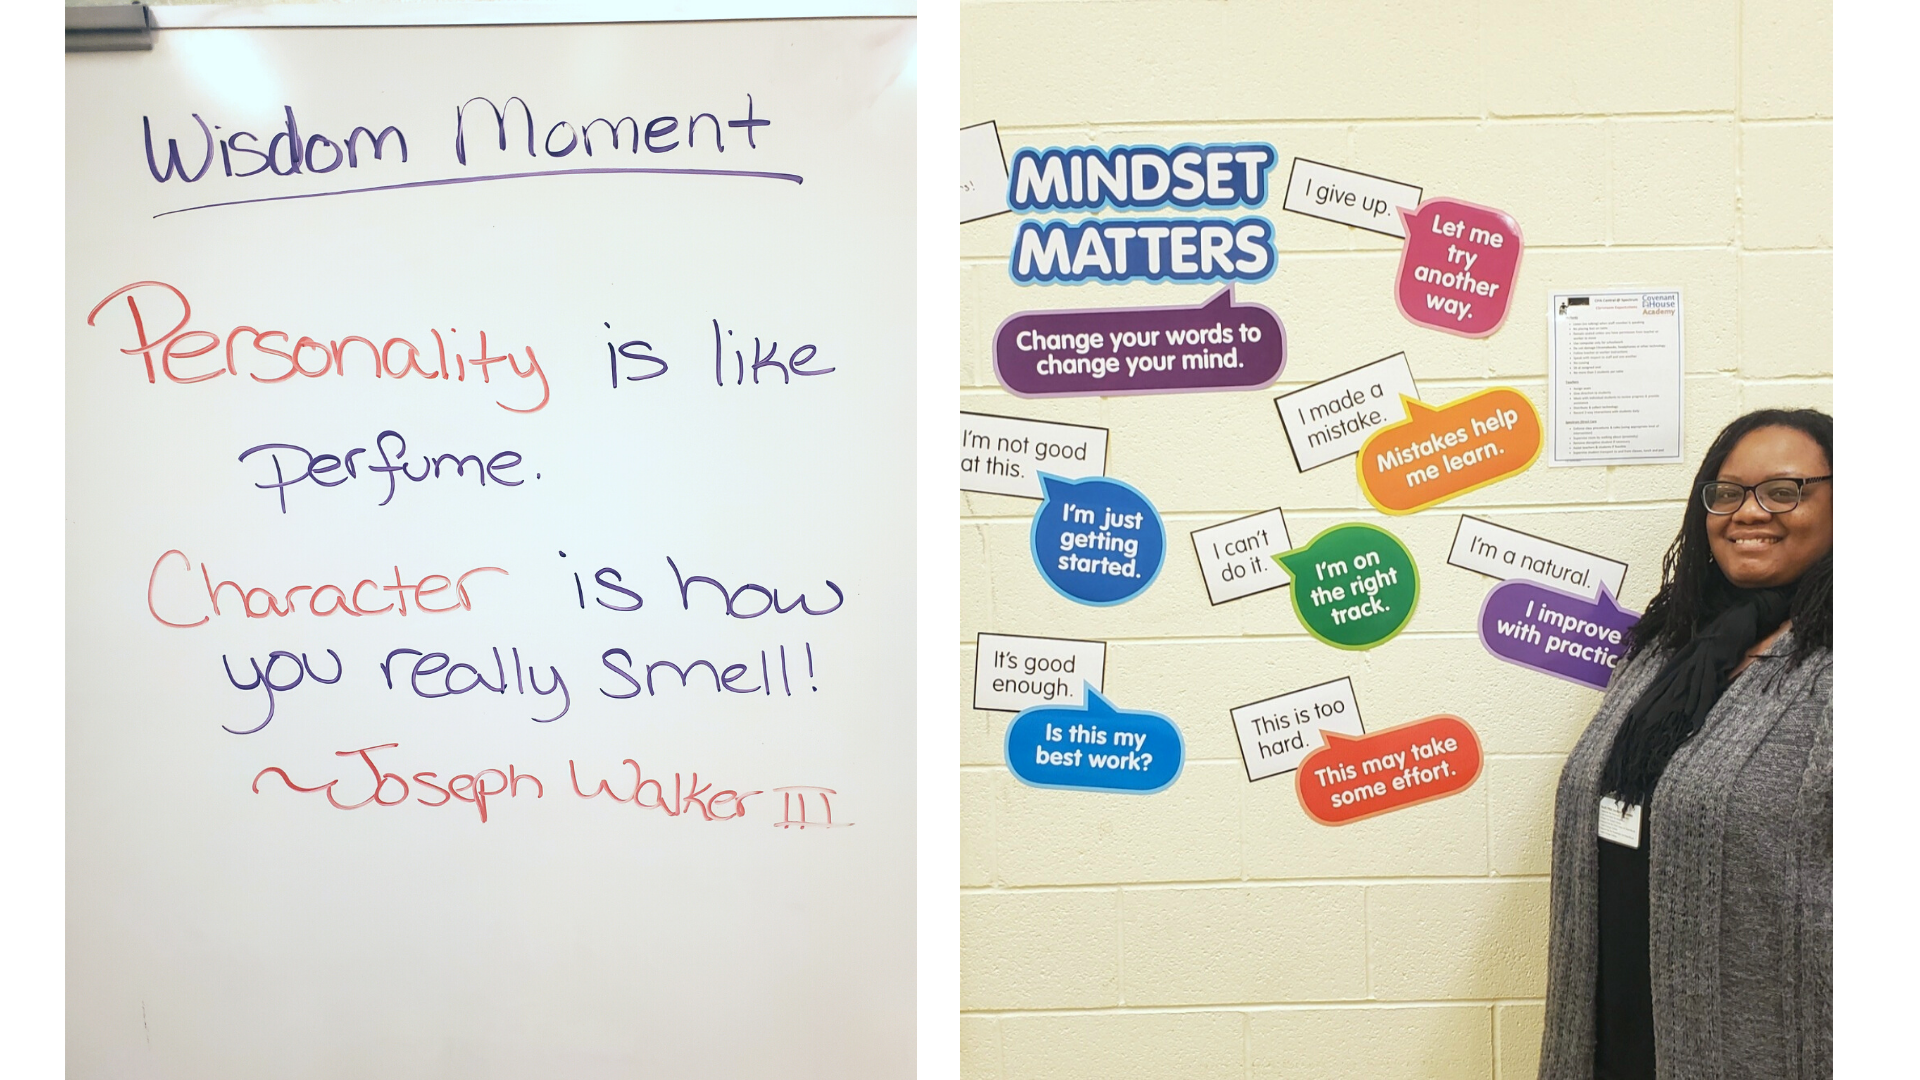 Wisdom Moment
Personality is like
perfume.
Character is how
you really smell!
~Joseph Walker III
MINDSET
MATTERS
Change your words to
change your mind.
I give up.
Let me
try
another
way.
Covenant
House
Academy
I made a
mistake.
Mistakes help
me learn.
I'm not good
at this.
I'm just
getting
started.
I can't
do it.
I'm on
the right
track.
I'm a natural.
I improve
with practic
It's good
enough.
Is this my
best work?
This is too
hard.
This may take
some effort.